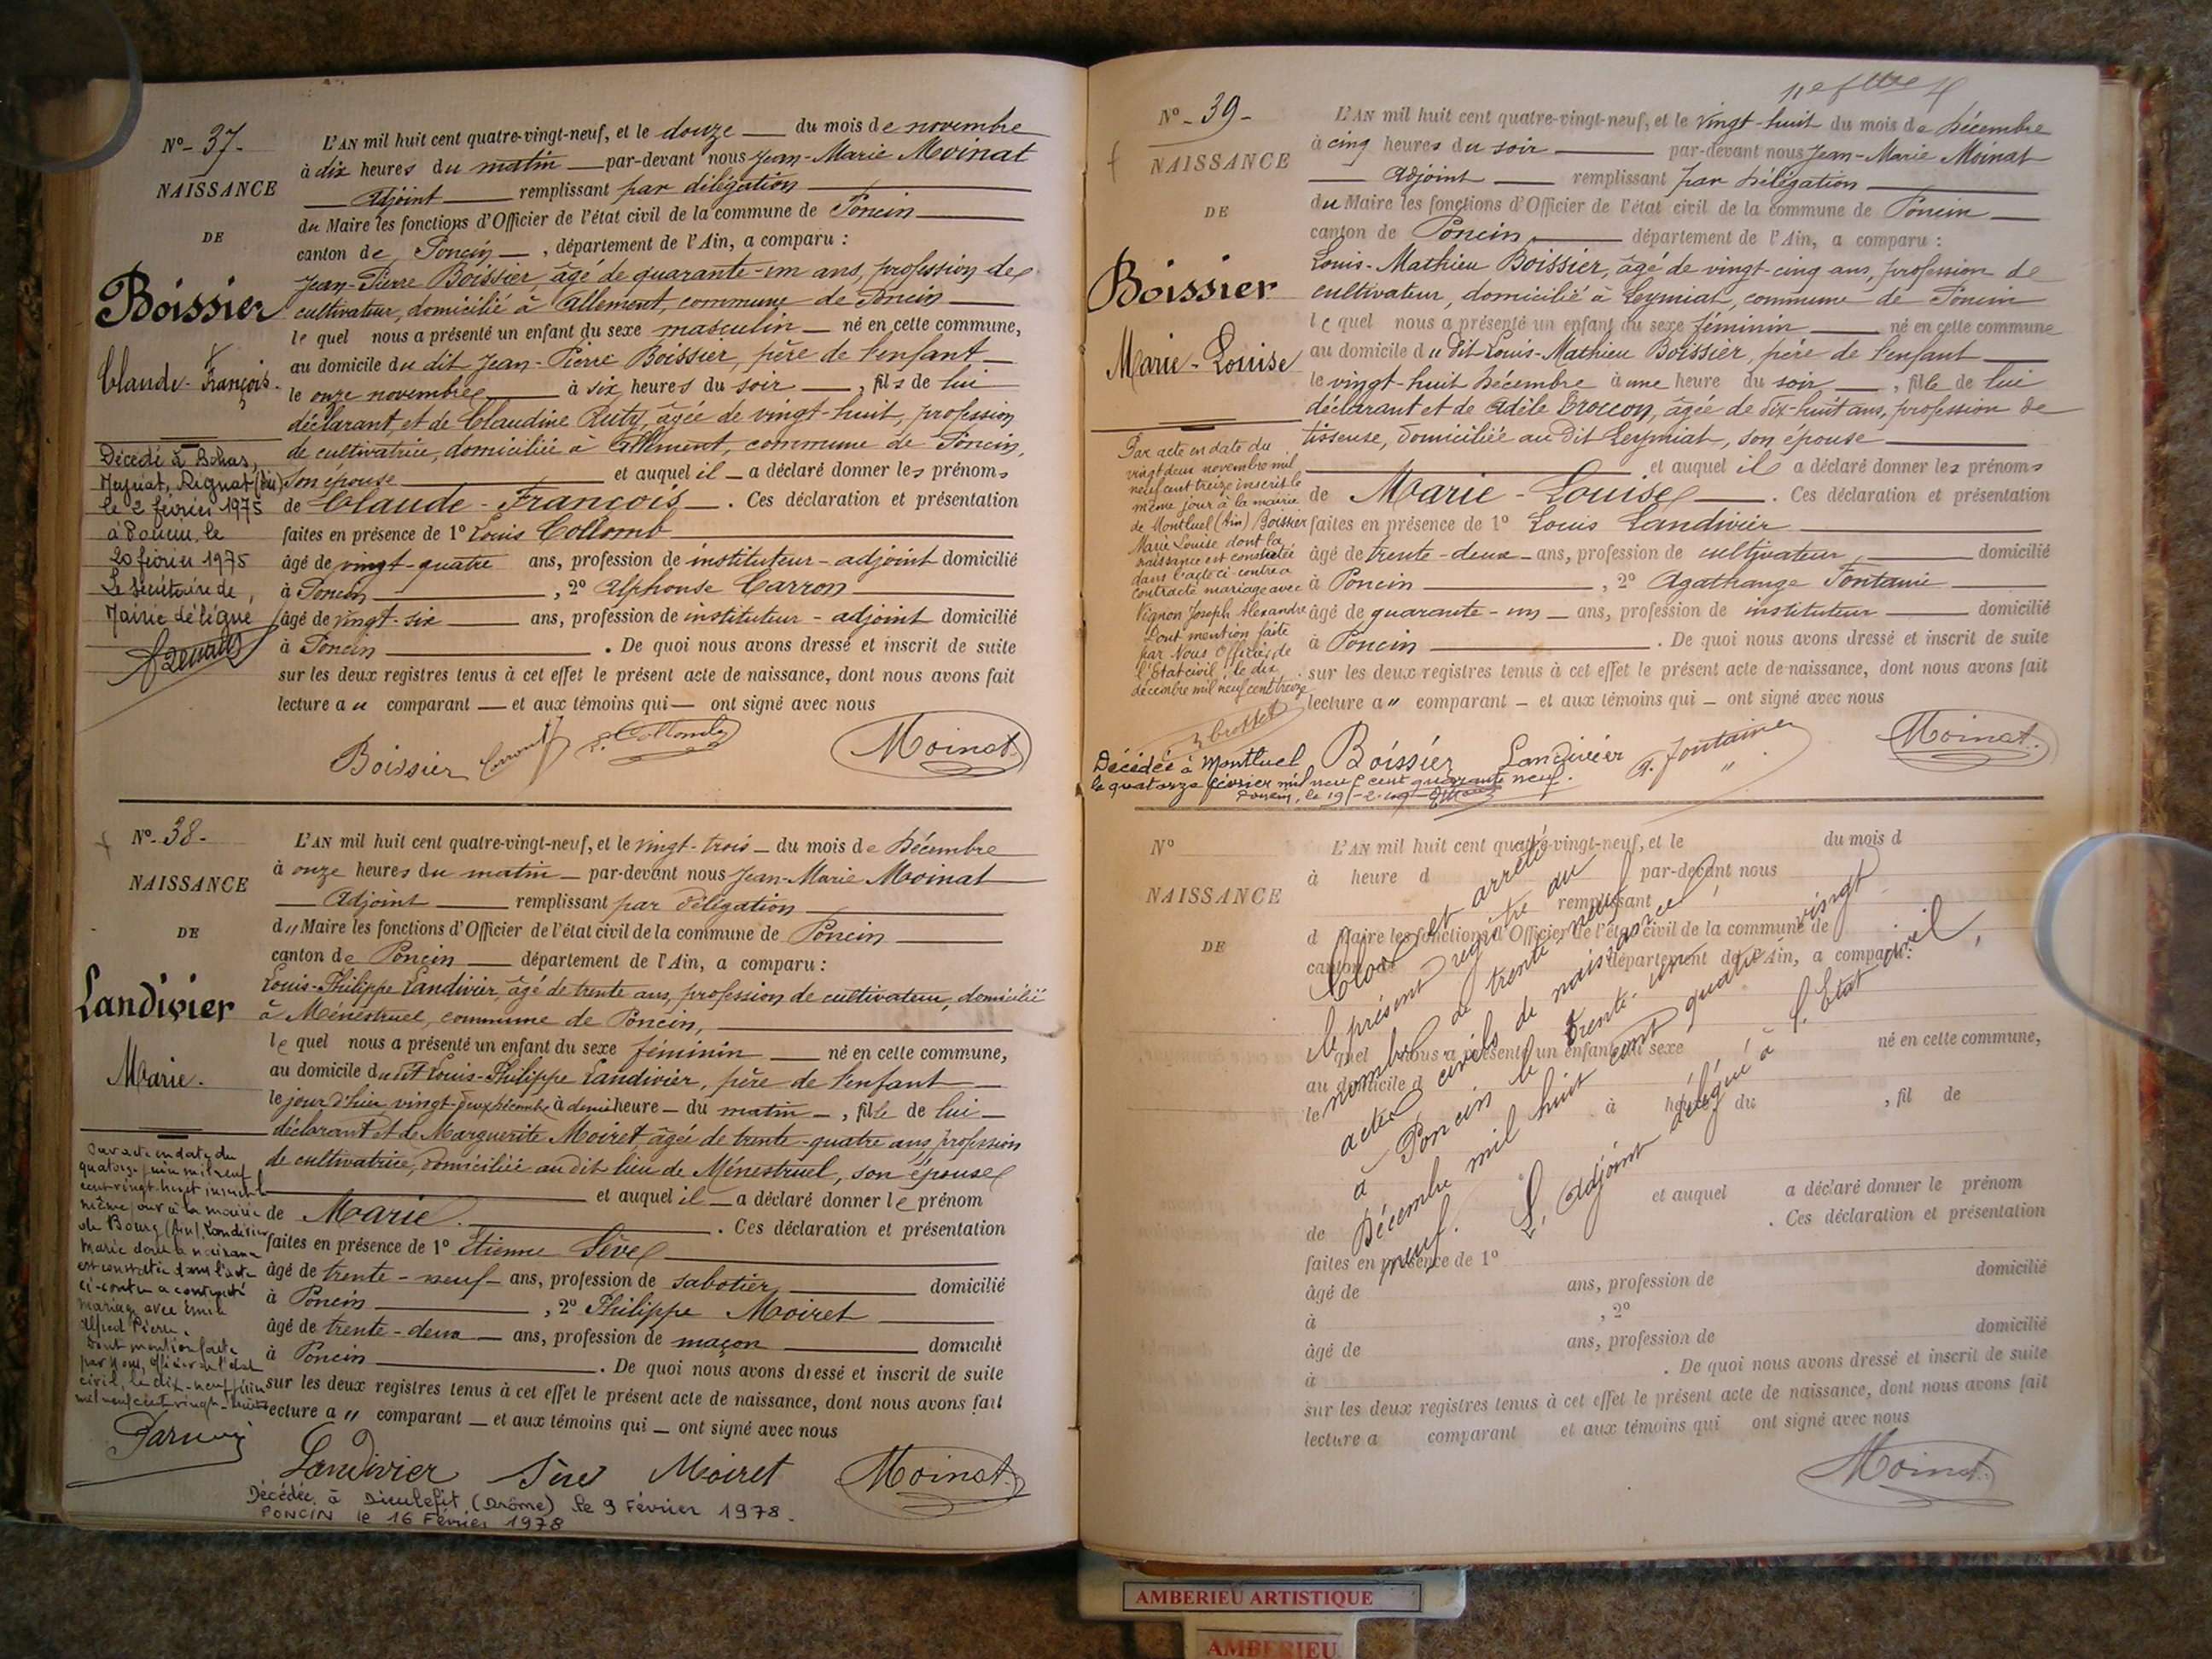 N° - 37 -
NAISSANCE
DE
Boissier
Claude - François -
L'AN mil huit cent quatre-vingt-neuf, et le douze du mois de novembre
à dix heures du matin par-devant nous Jean-Marie Moinat
Adjoint remplissant par délégation
du Maire les fonctions d'Officier de l'état civil de la commune de Poncin
canton de Poncin, département de l'Ain, a comparu :
Jean-Pierre Boissier, âgé de quarante-un ans, profession de
cultivateur, domicilié à Allement, commune de Poncin
le quel nous a présenté un enfant du sexe masculin né en cette commune,
au domicile du dit Jean-Pierre Boissier, père de l'enfant
le onze novembre à six heures du soir, fils de lui
déclarant, et de Claudine Ruty, âgée de vingt-huit, profession
de cultivatrice, domiciliée à Allement, commune de Poncin,
Son épouse et auquel il a déclaré donner les prénoms
de Claude - François. Ces déclaration et présentation
faites en présence de 1° Louis Collomb
âgé de vingt-quatre ans, profession de instituteur-adjoint domicilié
à Poncin, 2° Alphonse Carron
âgé de vingt-six ans, profession de instituteur-adjoint domicilié
à Poncin. De quoi nous avons dressé et inscrit de suite
sur les deux registres tenus à cet effet le présent acte de naissance, dont nous avons fait
lecture au comparant et aux témoins qui ont signé avec nous
Boissier Carron L. Collomb Moinat
Décédé à Bohas,
Meyriat, Rignat (Ain)
le 2 février 1975
à Poncin, le
20 février 1975
Le Secrétaire de
Mairie délégué
N° - 38 -
NAISSANCE
DE
Landivier
Marie.
L'AN mil huit cent quatre-vingt-neuf, et le vingt-trois du mois de Décembre
à onze heures du matin par-devant nous Jean-Marie Moinat
Adjoint remplissant par délégation
du Maire les fonctions d'Officier de l'état civil de la commune de Poncin
canton de Poncin département de l'Ain, a comparu :
Louis-Philippe Landivier, âgé de trente ans, profession de cultivateur, domicilié
à Ménestruel, commune de Poncin,
le quel nous a présenté un enfant du sexe féminin né en cette commune,
au domicile du dit Louis-Philippe Landivier, père de l'enfant
le jour d'hier vingt-deux décembre à demi heure du matin, fille de lui
déclarant et de Marguerite Moiret, âgée de trente-quatre ans, profession
de cultivatrice, domiciliée au dit lieu de Ménestruel, son épouse
et auquel il a déclaré donner le prénom
de Marie. Ces déclaration et présentation
faites en présence de 1° Etienne Sève
âgé de trente-neuf ans, profession de sabotier domicilié
à Poncin, 2° Philippe Moiret
âgé de trente-deux ans, profession de maçon domicilié
à Poncin. De quoi nous avons dressé et inscrit de suite
sur les deux registres tenus à cet effet le présent acte de naissance, dont nous avons fait
lecture au comparant et aux témoins qui ont signé avec nous
Landivier Sève Moiret Moinat
Par acte en date du
quatorze juin mil neuf
cent vingt-huit inscrit le
même jour à la mairie
de Bourg (Ain), Landivier
Marie dont la naissance
est constatée dans l'acte
ci-contre a contracté
mariage avec Emile
Alfred Pierre.
Dont mention faite
par Nous, officier de l'état
civil, le dix-neuf juin
mil neuf cent vingt-huit
Décédée à Dieulefit (Drôme) le 9 Février 1978.
PONCIN le 16 Février 1978
N° - 39 -
NAISSANCE
DE
Boissier
Marie - Louise
L'AN mil huit cent quatre-vingt-neuf, et le vingt-huit du mois de Décembre
à cinq heures du soir par-devant nous Jean-Marie Moinat
Adjoint remplissant par délégation
du Maire les fonctions d'Officier de l'état civil de la commune de Poncin
canton de Poncin, département de l'Ain, a comparu :
Louis-Mathieu Boissier, âgé de vingt-cinq ans, profession de
cultivateur, domicilié à Leymiat, commune de Poncin
le quel nous a présenté un enfant du sexe féminin né en cette commune
au domicile du dit Louis-Mathieu Boissier, père de l'enfant
le vingt-huit Décembre à une heure du soir, fille de lui
déclarant et de Adèle Croccon, âgée de dix-huit ans, profession de
tisseuse, domiciliée au dit Leymiat, son épouse
et auquel il a déclaré donner les prénoms
de Marie - Louise. Ces déclaration et présentation
faites en présence de 1° Louis Landivier
âgé de trente-deux ans, profession de cultivateur, domicilié
à Poncin, 2° Agathange Fontaine
âgé de quarante-un ans, profession de instituteur domicilié
à Poncin. De quoi nous avons dressé et inscrit de suite
sur les deux registres tenus à cet effet le présent acte de naissance, dont nous avons fait
lecture au comparant et aux témoins qui ont signé avec nous
Boissier Landivier A. Fontaine Moinat
Par acte en date du
vingt deux novembre mil
neuf cent treize inscrit le
même jour à la mairie
de Montluel (Ain) Boissier
Marie Louise dont la
naissance est constatée
dans l'acte ci-contre a
contracté mariage avec
Vignon Joseph Alexandre
Dont mention faite
par Nous Officier de
l'Etat civil, le dix
décembre mil neuf cent treize
Décédée à Montluel
le quatorze février mil neuf cent quarante neuf.
Poncin, le 19-2-49
N°
NAISSANCE
DE
L'AN mil huit cent quatre-vingt-neuf, et le du mois d
à heure d par-devant nous
remplissant
d Maire les fonctions d'Officier de l'état civil de la commune de
canton de département de l'Ain, a comparu :
le quel nous a présenté un enfant du sexe né en cette commune,
au domicile d
le à heure du , fil de
et auquel a déclaré donner le prénom
de . Ces déclaration et présentation
faites en présence de 1°
âgé de ans, profession de domicilié
à , 2°
âgé de ans, profession de domicilié
à . De quoi nous avons dressé et inscrit de suite
sur les deux registres tenus à cet effet le présent acte de naissance, dont nous avons fait
lecture a comparant et aux témoins qui ont signé avec nous
Clos et arrêté
le présent registre au
nombre de trente-neuf
actes civils de naissance,
à Poncin le trente-un
Décembre mil huit cent quatre vingt
neuf.
L'Adjoint délégué à l'Etat civil,
Moinat
AMBERIEU ARTISTIQUE
AMBERIEU